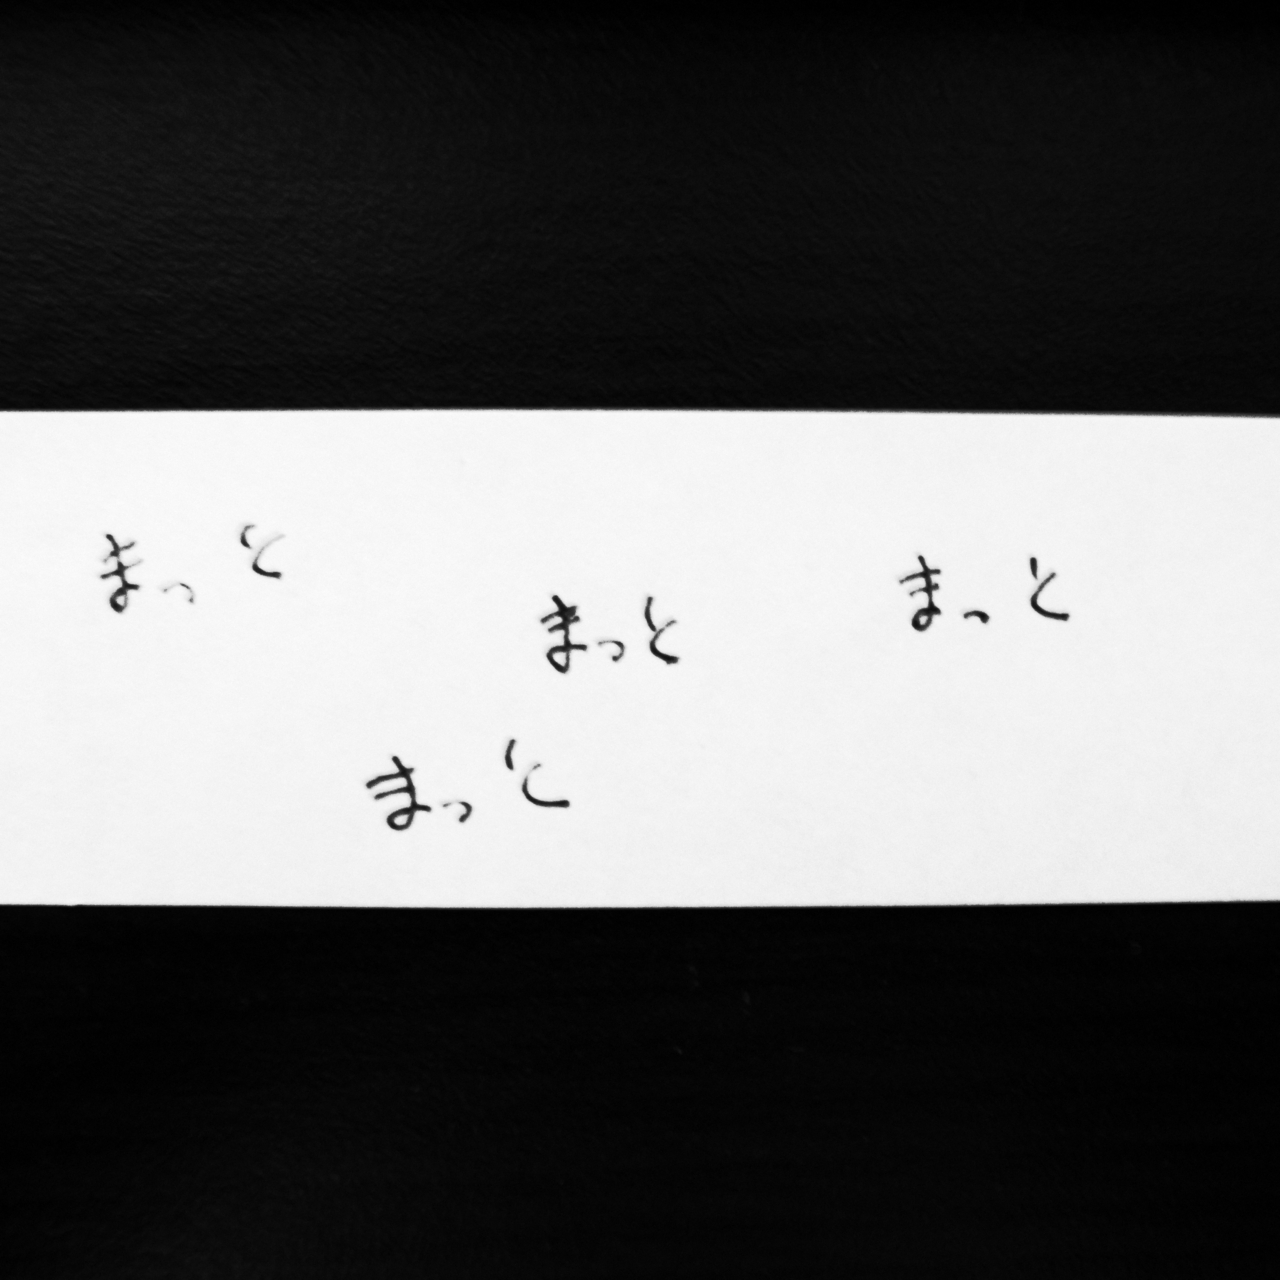 まっと まっと まっと
まっと